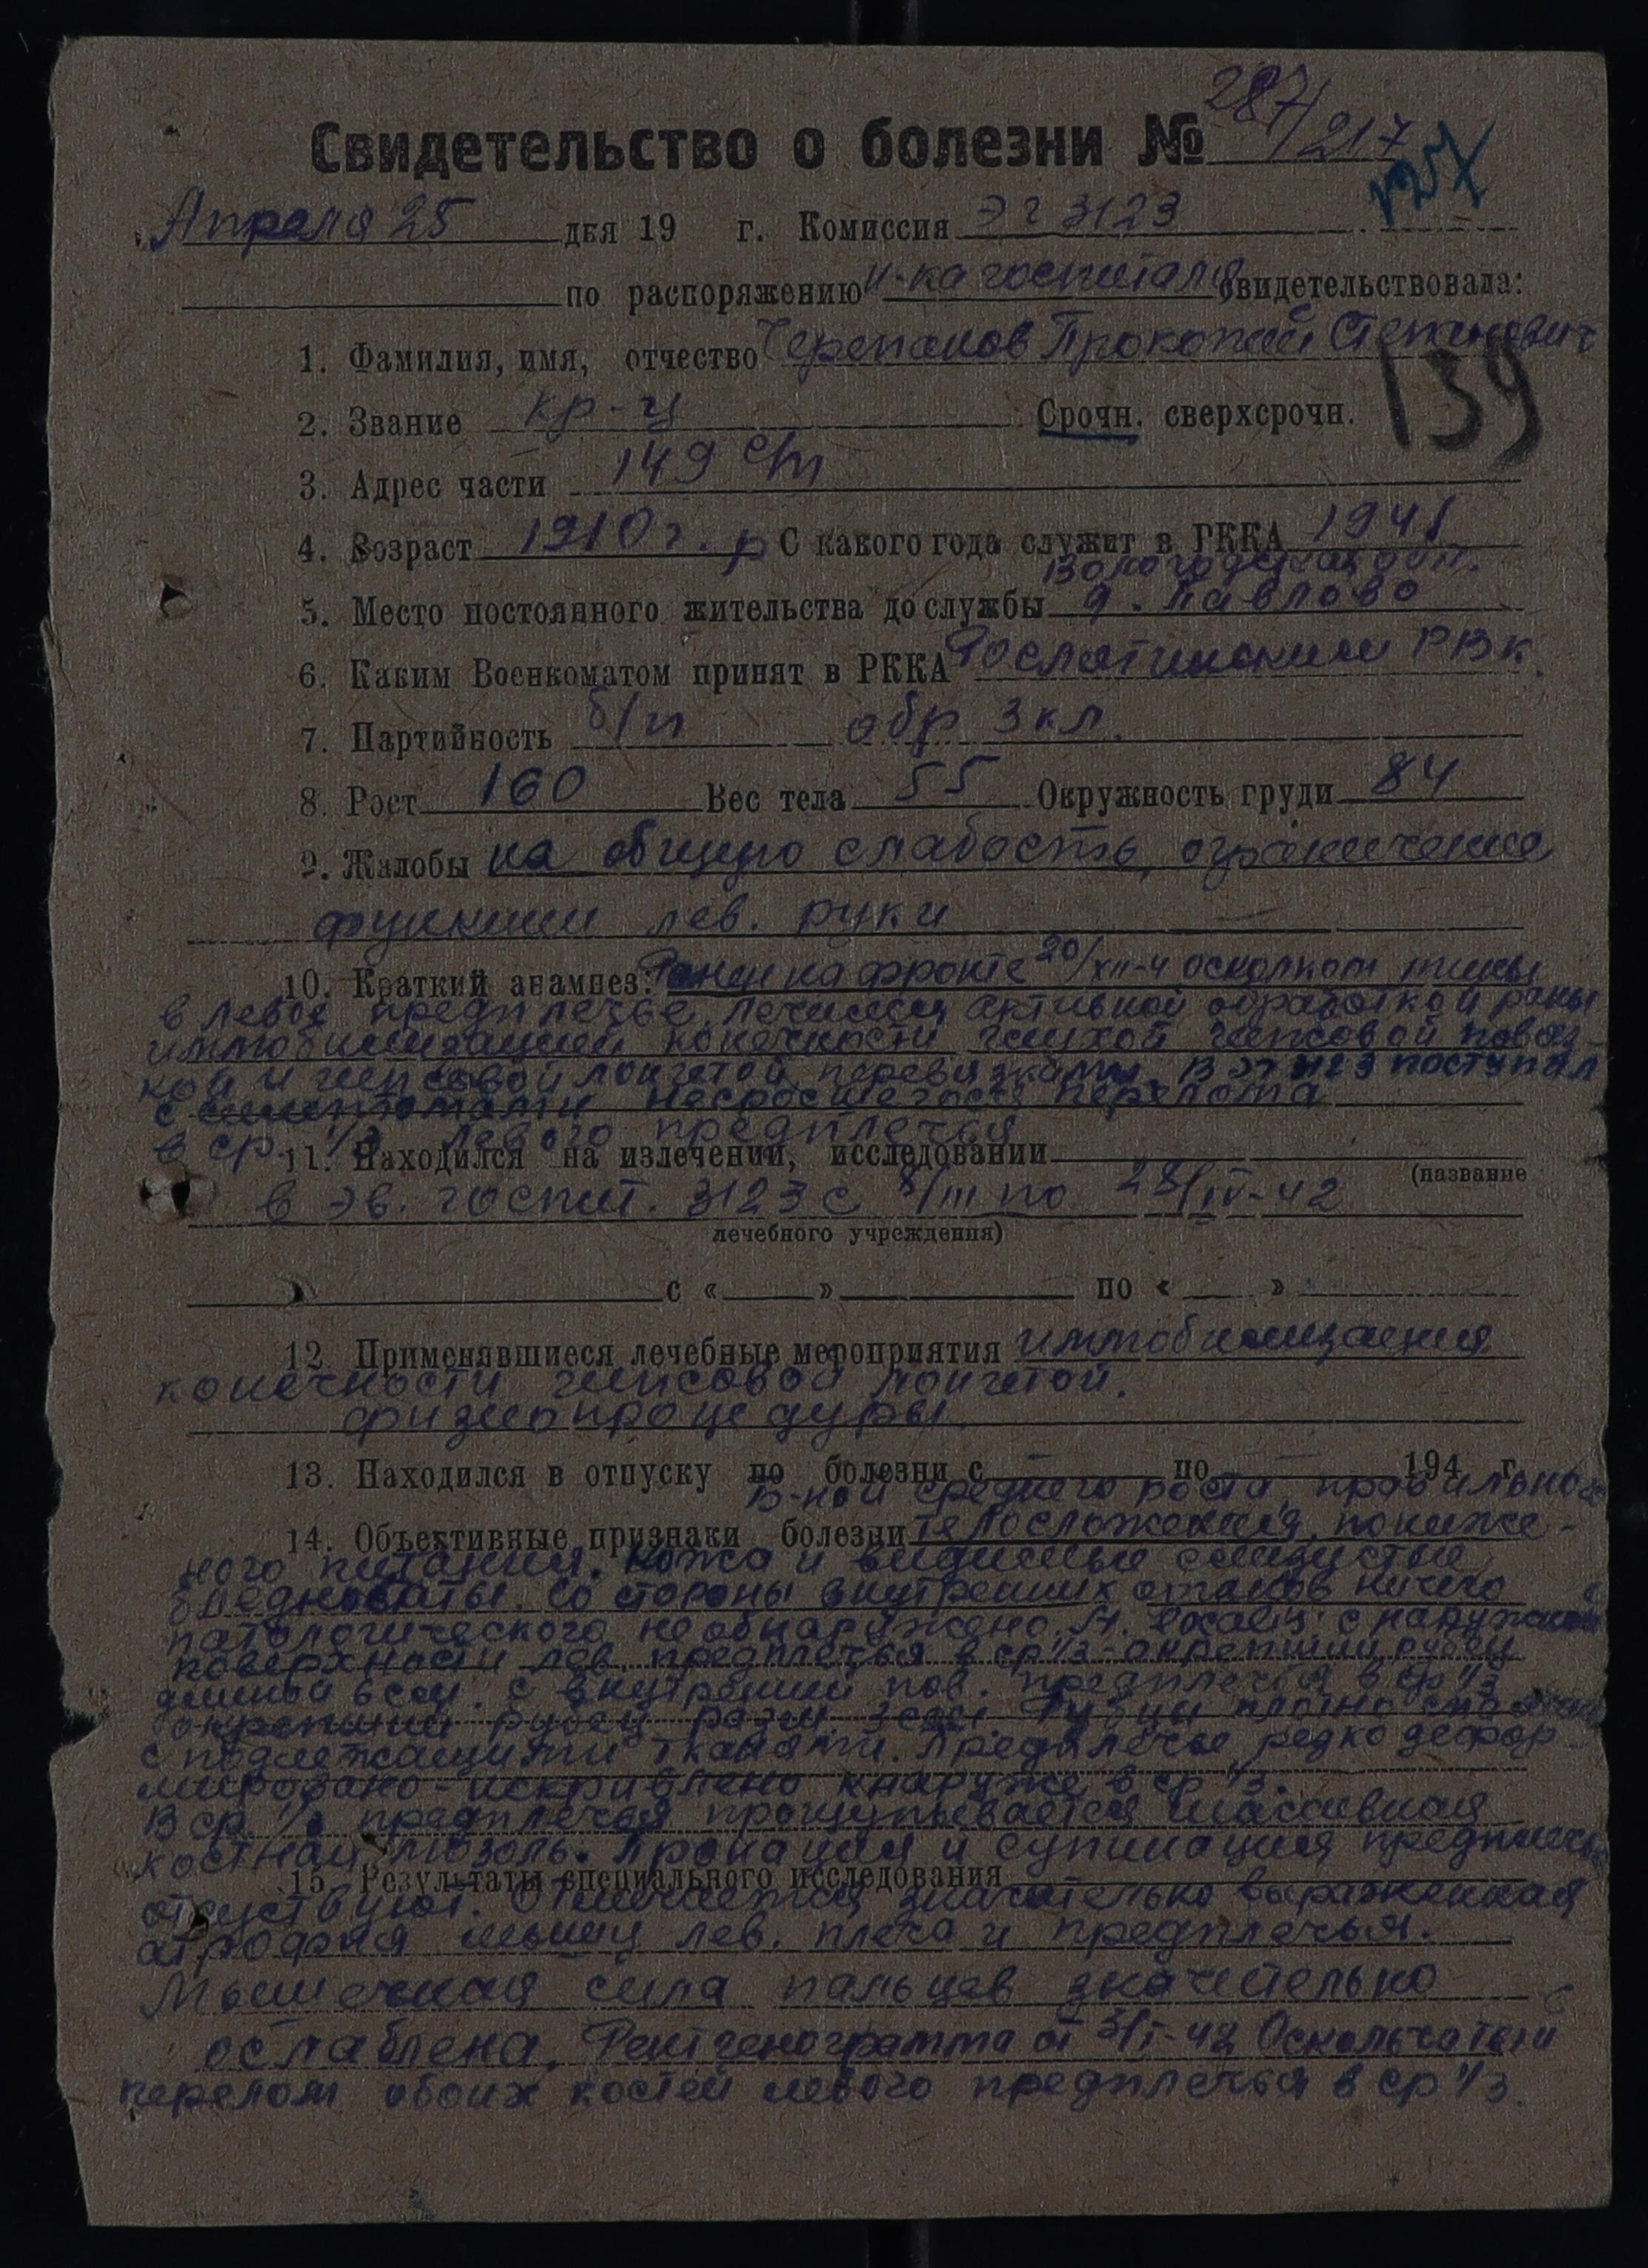 Свидетельство о болезни № 287/217
127
Апреля 25 дня 19 г. Комиссия ЭГ 3123
по распоряжению н-ка госпиталя свидетельствовала:
1. Фамилия, имя, отчество Черепанов Прокопий Степанович
139
2. Звание кр-ц Срочн. сверхсрочн.
3. Адрес части 149 с/п
4. Возраст 1910 г. р С какого года служит в РККА 1941
Вологодская обл.
5. Место постоянного жительства до службы д. Павлово
6. Каким Военкоматом принят в РККА Рослятинским РВК.
7. Партийность б/п обр 3 кл.
8. Рост 160 Вес тела 55 Окружность груди 84
9. Жалобы на общую слабость, ограничение
функции лев. руки
10. Краткий анамнез: Ранен на фронте 20/XII-4 осколком мины
в левое предплечье, лечился активной обработкой раны
иммобилизацией конечности глухой гипсовой повяз-
кой и гипсовой лонгетой, перевязками. В ЭГ 3123 поступил
с симптомами несросшегося перелома
в ср. 1/3 левого предплечья
11. Находился на излечении, исследовании
(название
в эв. госпит. 3123 с 8/III по 28/IV-42
лечебного учреждения)
с « » по « »
12. Применявшиеся лечебные мероприятия иммобилизация
конечности гипсовой лонгетой.
физиопроцедуры.
13. Находился в отпуску по болезни с – по – 194 г.
Б-ной среднего роста, правильного
14. Объективные признаки болезни телосложения, пониже-
ного питания. Кожа и видимые слизистые
бледноваты. Со стороны внутренних органов ничего
патологического не обнаружено. St. localis: с наружной
поверхности лев. предплечья в ср 1/3 - окрепший рубец
длиной 6 см. с внутренней пов. предплечья в ср 1/3
окрепший рубец разм. 3 см. Рубцы плотно спаяны
с подлежащими тканями. Предплечье редко дефор-
мировано - искривлено кнаружи в ср 1/3.
В ср. 1/3 предплечья прощупывается массивная
костная мозоль. Пронация и супинация предплечья
15. Результаты специального исследования
отсуствуют. Отмечается значительно выраженная
атрофия мышц лев. плеча и предплечья.
Мышечная сила пальцев значительно
ослаблена. Рентгенограмма от 3/I-42 Оскольчатый
перелом обоих костей левого предплечья в ср 1/3.